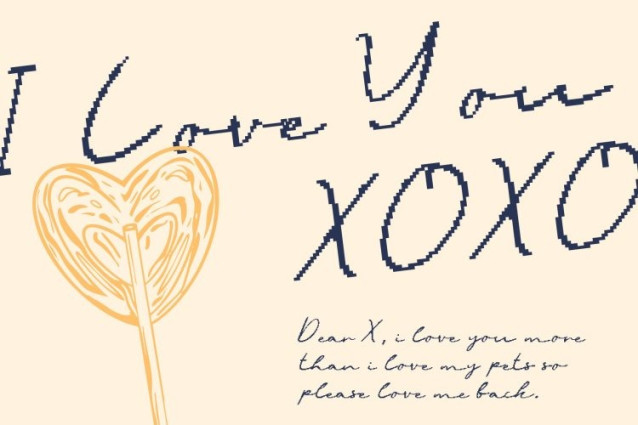 I Love You
XOXO
Dear X, i love you more
than i love my pets so
please love me back.